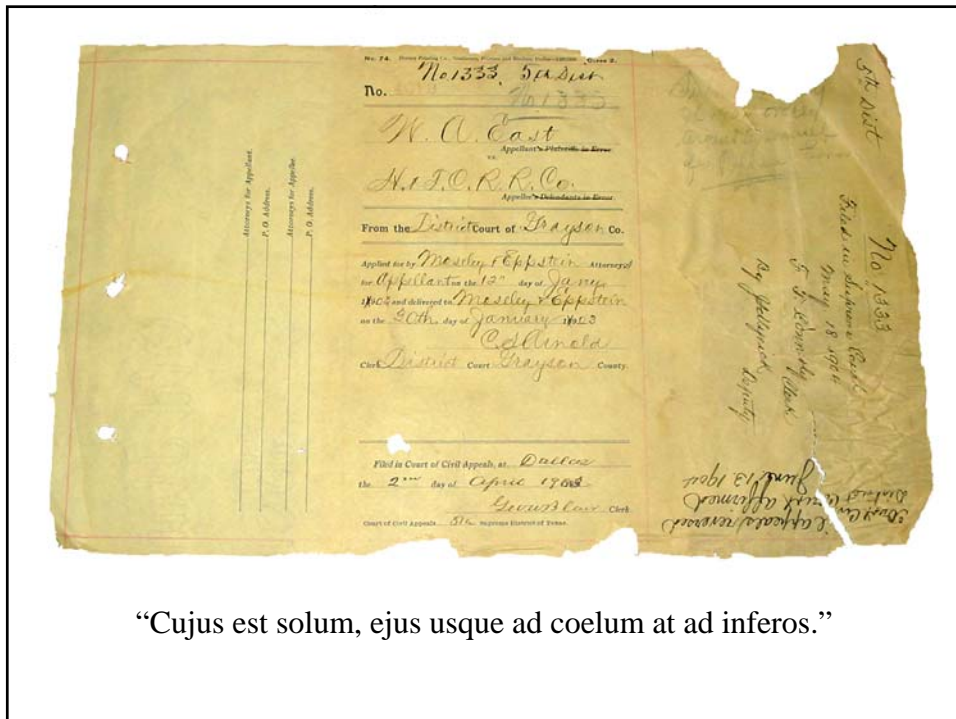 No. 74.
No 1333, 5th Dist
No.
No 1333
W. A. East
Appellant's Plaintiffs in Error
vs.
H. & T. C. R. R. Co.
Appellee's Defendants in Error.
From the District Court of Grayson Co.
Applied for by Moseley & Eppstein Attorneys
for Appellant on the 12th day of Jany
and delivered to Moseley & Eppstein
on the 30th day of January 1903
Arnold
Clerk District Court Grayson County.
Filed in Court of Civil Appeals, at Dallas
the 2nd day of April 1903
Clerk
Court of Civil Appeals 5th Supreme District of Texas.
Attorneys for Appellant.
P. O. Address.
Attorneys for Appellee.
P. O. Address.
5th Dist
No 1333
Filed in Supreme Court
May 18 1904
Clerk
By Deputy
reversed
District Court affirmed
June 13 1904
“Cujus est solum, ejus usque ad coelum at ad inferos.”